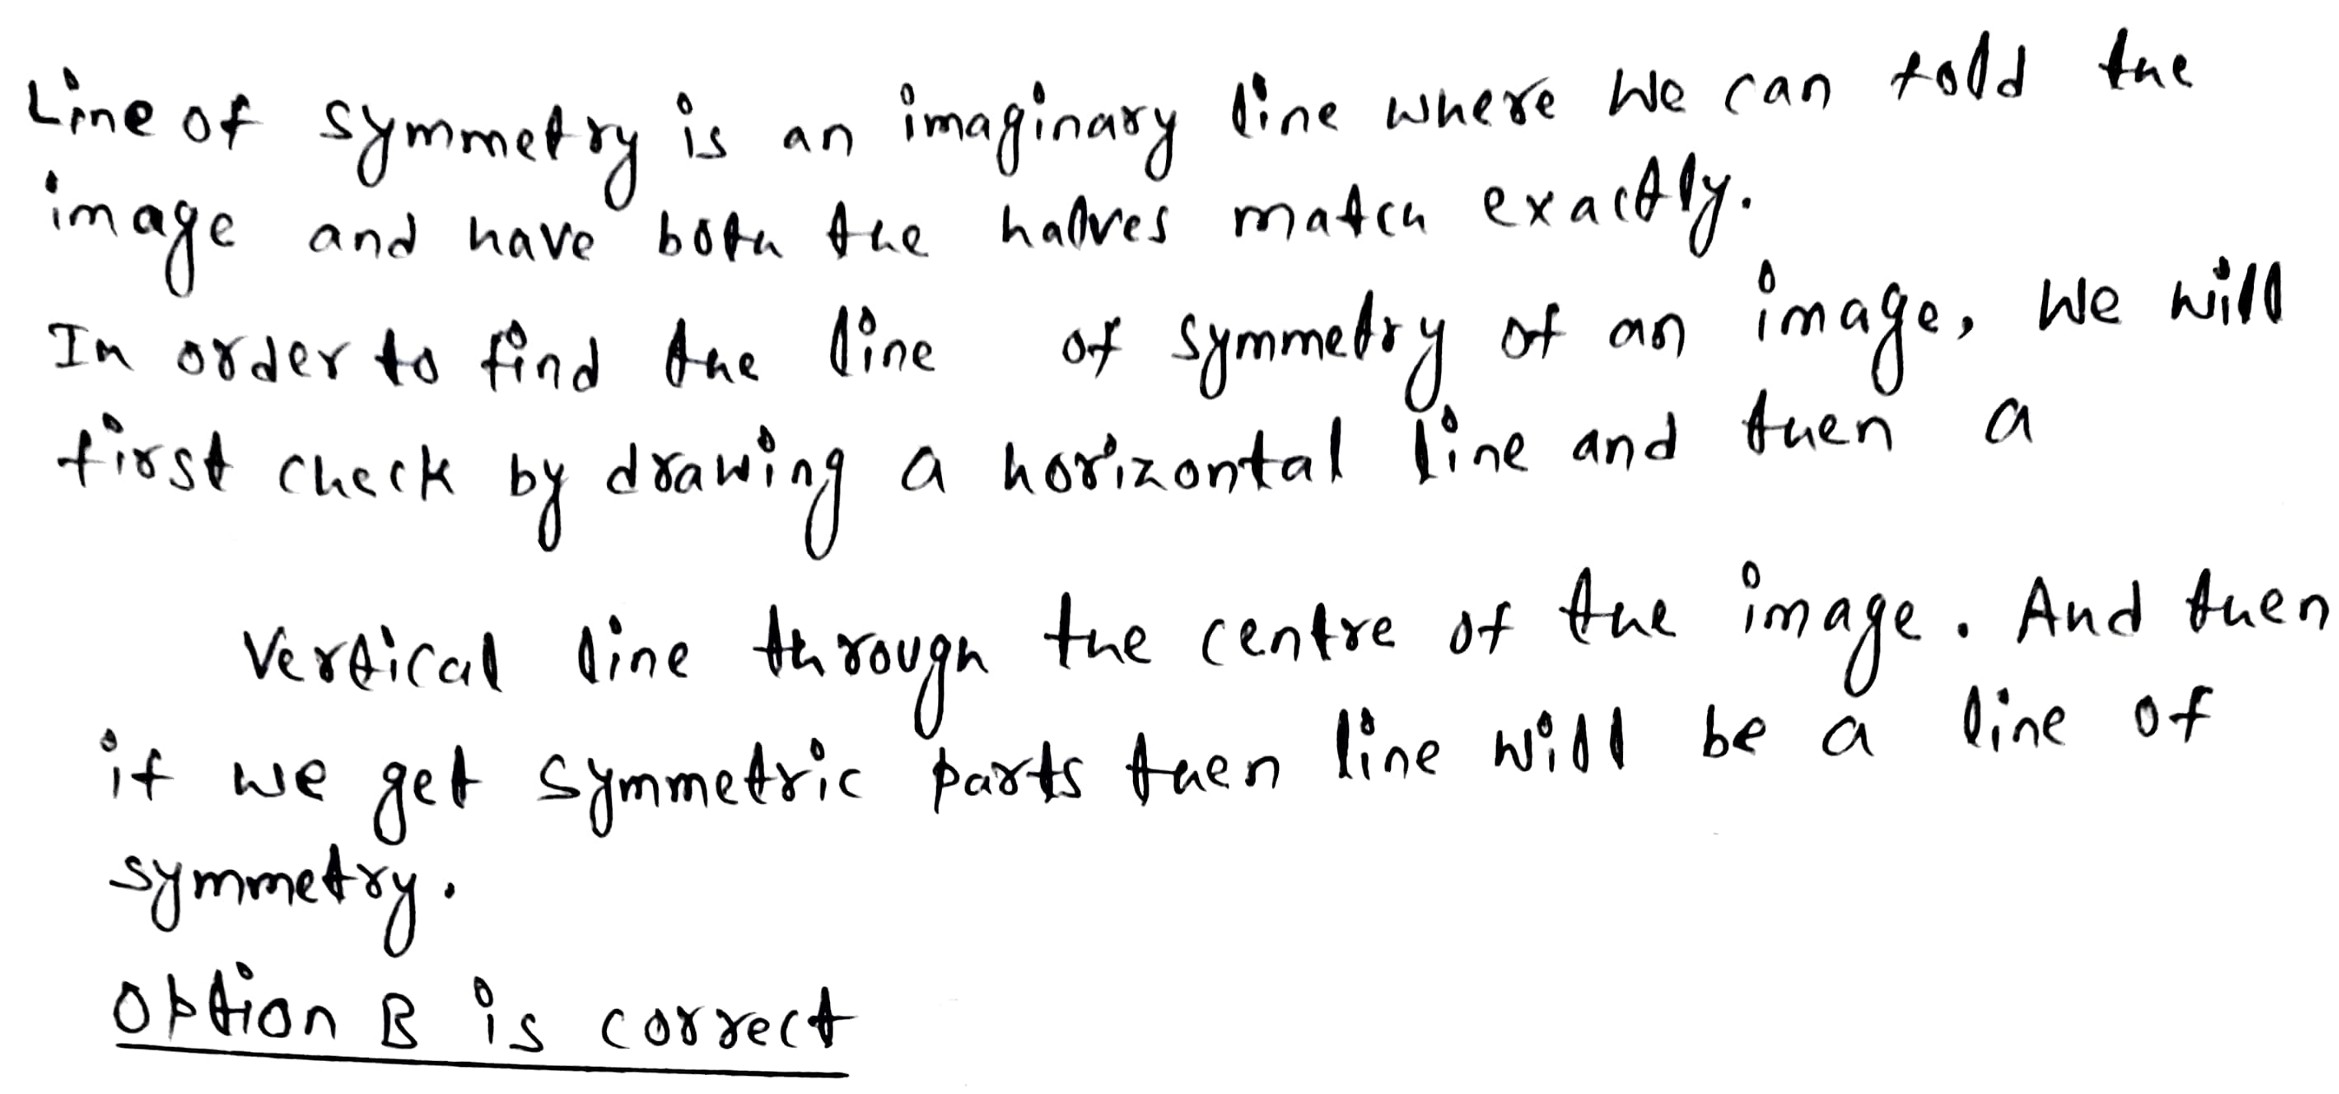 Line of symmetry is an imaginary line where we can fold the
image and have both the halves match exactly.
In order to find the line of symmetry of an image, we will
first check by drawing a horizontal line and then a
Vertical line through the centre of the image. And then
if we get symmetric parts then line will be a line of
symmetry.
Option B is correct